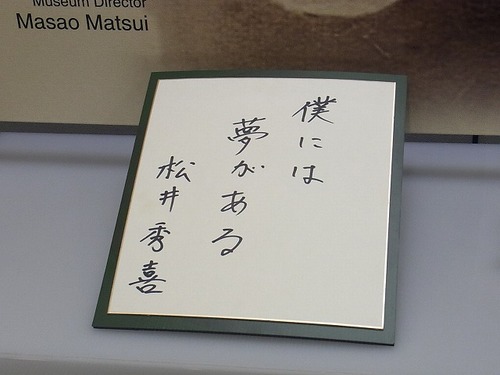 Museum Director
Masao Matsui
僕には
夢がある
松井秀喜